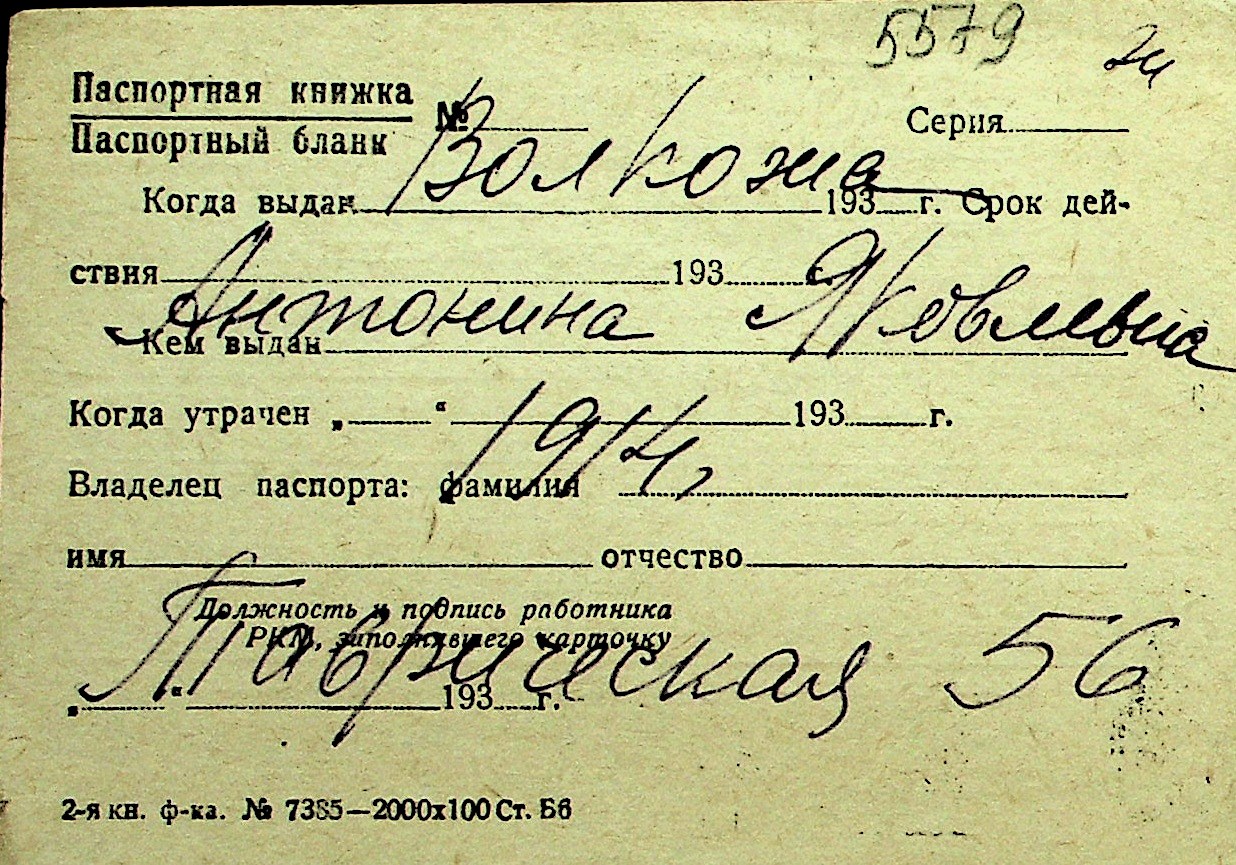 5579
Паспортная книжка
Паспортный бланк № Серия
Волкова
Когда выдан 193 г. Срок дей-
ствия 193 г.
Антонина Яковлевна
Кем выдан
Когда утрачен „ “ 193 г.
1914
Владелец паспорта: фамилия
имя отчество
Должность и подпись работника
РКМ, заполнявшего карточку
Таврическая 56
„ “ 193 г.
2-я кн. ф-ка. № 7385—2000х100 Ст. Бб